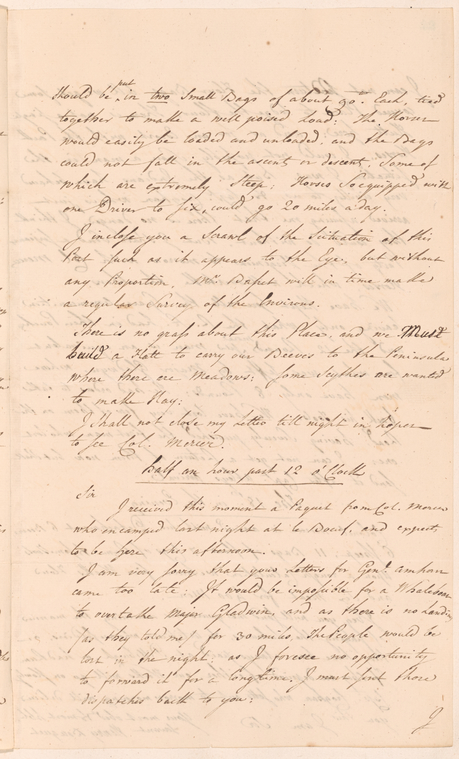 should be put in two small Bags of about 90. Each, tied
together to make a well poised Load; The Horses
would easily be loaded and unloaded, and the Bags
could not fall in the ascents or descents, Some of
which are extremely Steep: Horses So equipped with
one Driver to Six, could go 20 miles a day.
I inclose you a Scrawl of the Scituation of this
Post Such as it appears to the Eye, but without
any Proportion. Mr. will in time make
a regular Survey of the Environs.
There is no grass about this Place, and we Must
build a Flatt to carry our Beeves to the Peninsula
where there are Meadows: Some Scythes are wanted
to make Hay:
I Shall not close my Letter till night in hopes
to See Col. Mercer
Half an hour past 12 o'Clock
Sir
I received this moment a Paquet from Col. Mercer
who encamped last night at le Boeuf, and expects
to be here this afternoon.
I am very Sorry that your Letters for Genl. Amherst
came too late. It would be impossible for a Whaleboat
to overtake Major Gladwin, and as there is no Landing
(as they told me) for 30 miles, The People would be
lost in the night: as I foresee no opportunity
to forward it for a long time, I must send those
dispatches back to you:
I